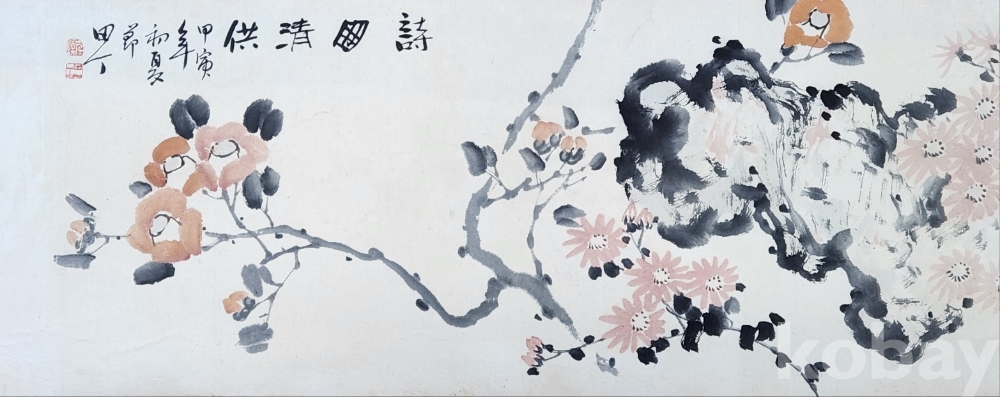 詩囪清供
甲寅
年
初夏
節
田丁
kobay